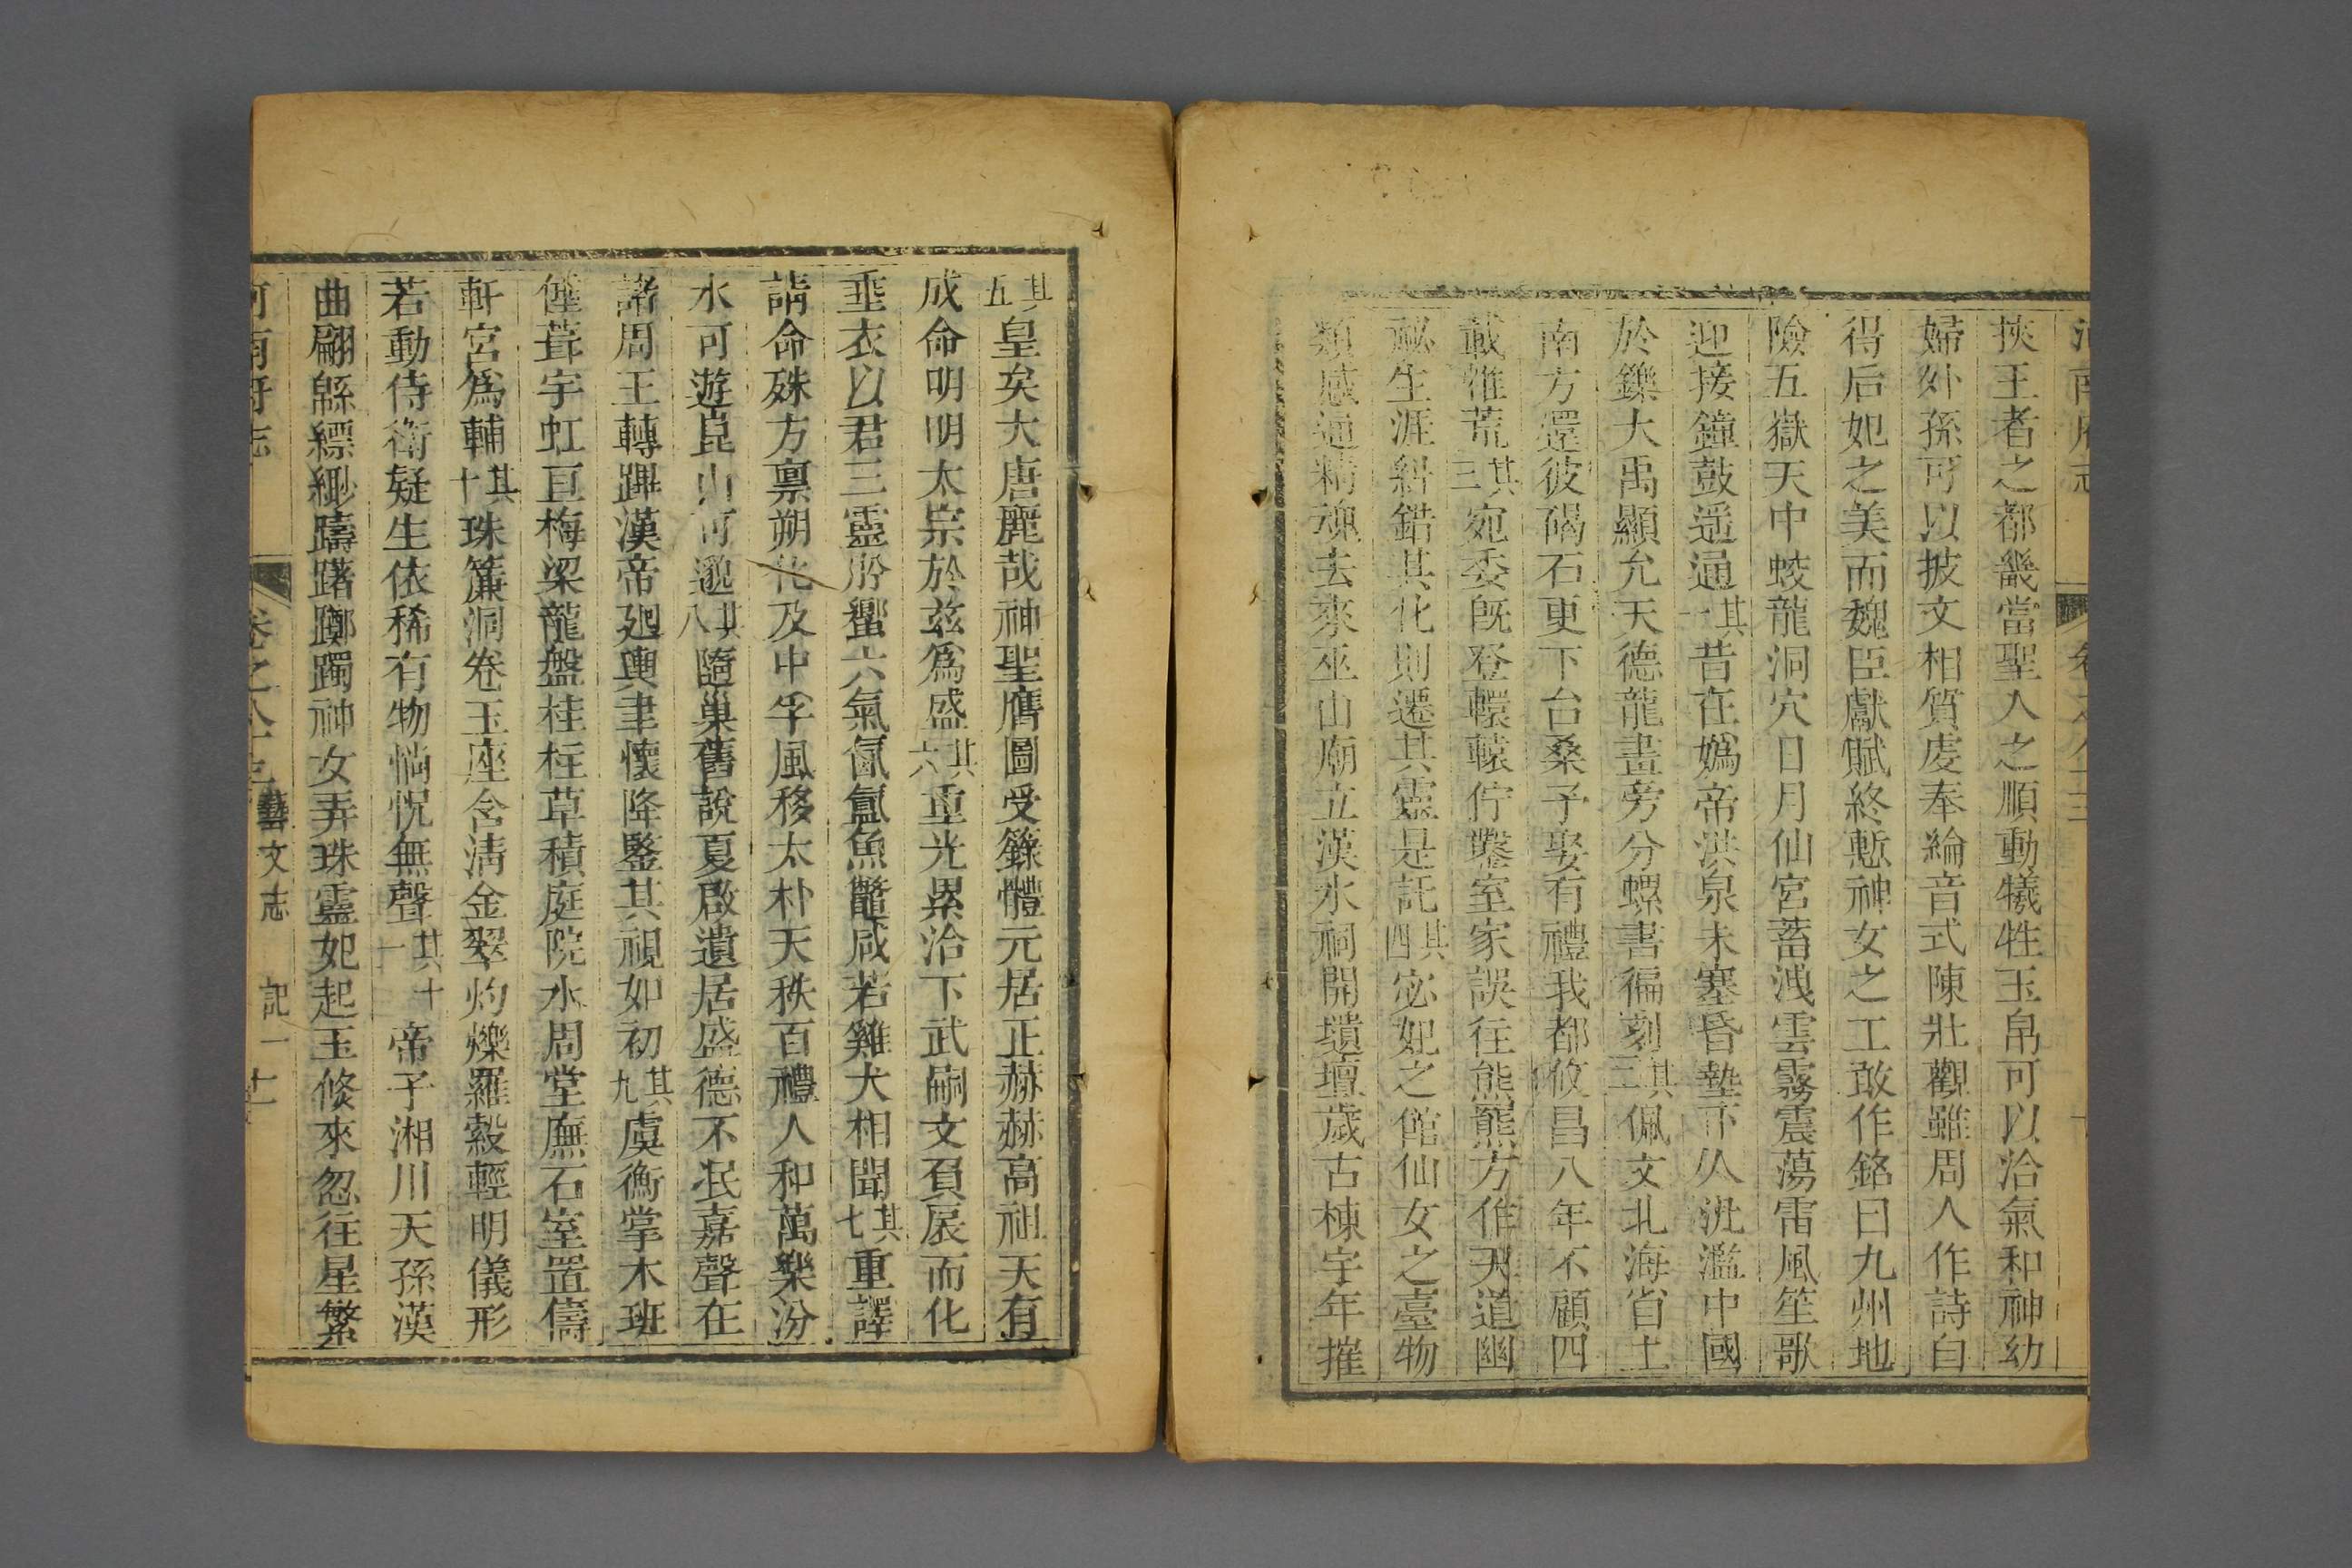 挾王者之都畿當聖人之順動犧牲玉帛可以洽氣和神幼
婦外孫可以披文相質虔奉綸音式陳壯觀雖周人作詩自
得后妃之美而魏臣獻賦終慙神女之工敢作銘曰九州地
險五嶽天中蛟龍洞穴日月仙宮蓄洩雲霧震蕩雷風笙歌
迎接鐘鼓遥通其一昔在嬀帝洪泉未塞昏墊下人沘濫中國
於鑠大禹顯允天德龍畫旁分螺書徧刻其二佩文北海省土
南方還彼碣石更下台桑予娶有禮我都攸昌八年不顧四
載惟荒其三宛委既登轘轅佇鑿室家誤往熊羆方作天道幽
祕生涯糾錯其化則遷其靈是託其四宓妃之館仙女之臺物
類感通精魂去來巫山廟立漢水祠開壝壇歲古棟宇年摧
其五皇矣大唐麗哉神聖膺圖受籙體元居正赫赫高祖天有
成命明明太宗於茲爲盛其六重光累洽下武嗣文負扆而化
垂衣以君三靈肹蠁六氣氤氳魚鼈咸若雞犬相聞其七重譯
請命殊方禀朔化及中孚風移太朴天秩百禮人和萬樂汾
水可遊崑山可邈其八隨巢舊說夏啟遺居盛德不泯嘉聲在
諸周王轉蹕漢帝廻輿聿懷降鑒其視如初其九虞衡掌木班
僅葺宇虹亘梅梁龍盤桂柱草積庭院水周堂廡石室置儔
軒宮爲輔其十珠簾洞卷玉座含淸金翠灼爍羅縠輕明儀形
若動侍衛疑生依稀有物惝怳無聲其十一帝子湘川天孫漢
曲翩緜縹緲躊躇躑躅神女弄珠靈妃起玉倏來忽往星繁
河南府志 卷之八十 藝文志 記一 十一